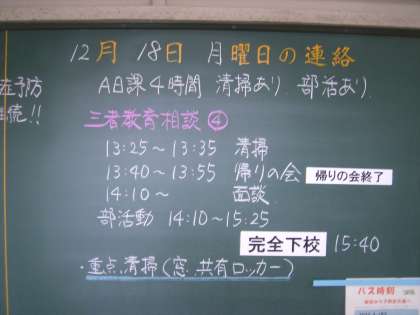 12月 18日 月曜日の連絡
在予防
A日課4時間 清掃あり 部活あり
続!!
三者教育相談 ④
13:25～13:35 清掃
13:40～13:55 帰りの会 帰りの会終了
14:10～ 面談
部活動 14:10～15:25
完全下校 15:40
・重点清掃(窓、共有ロッカー)
バス時刻